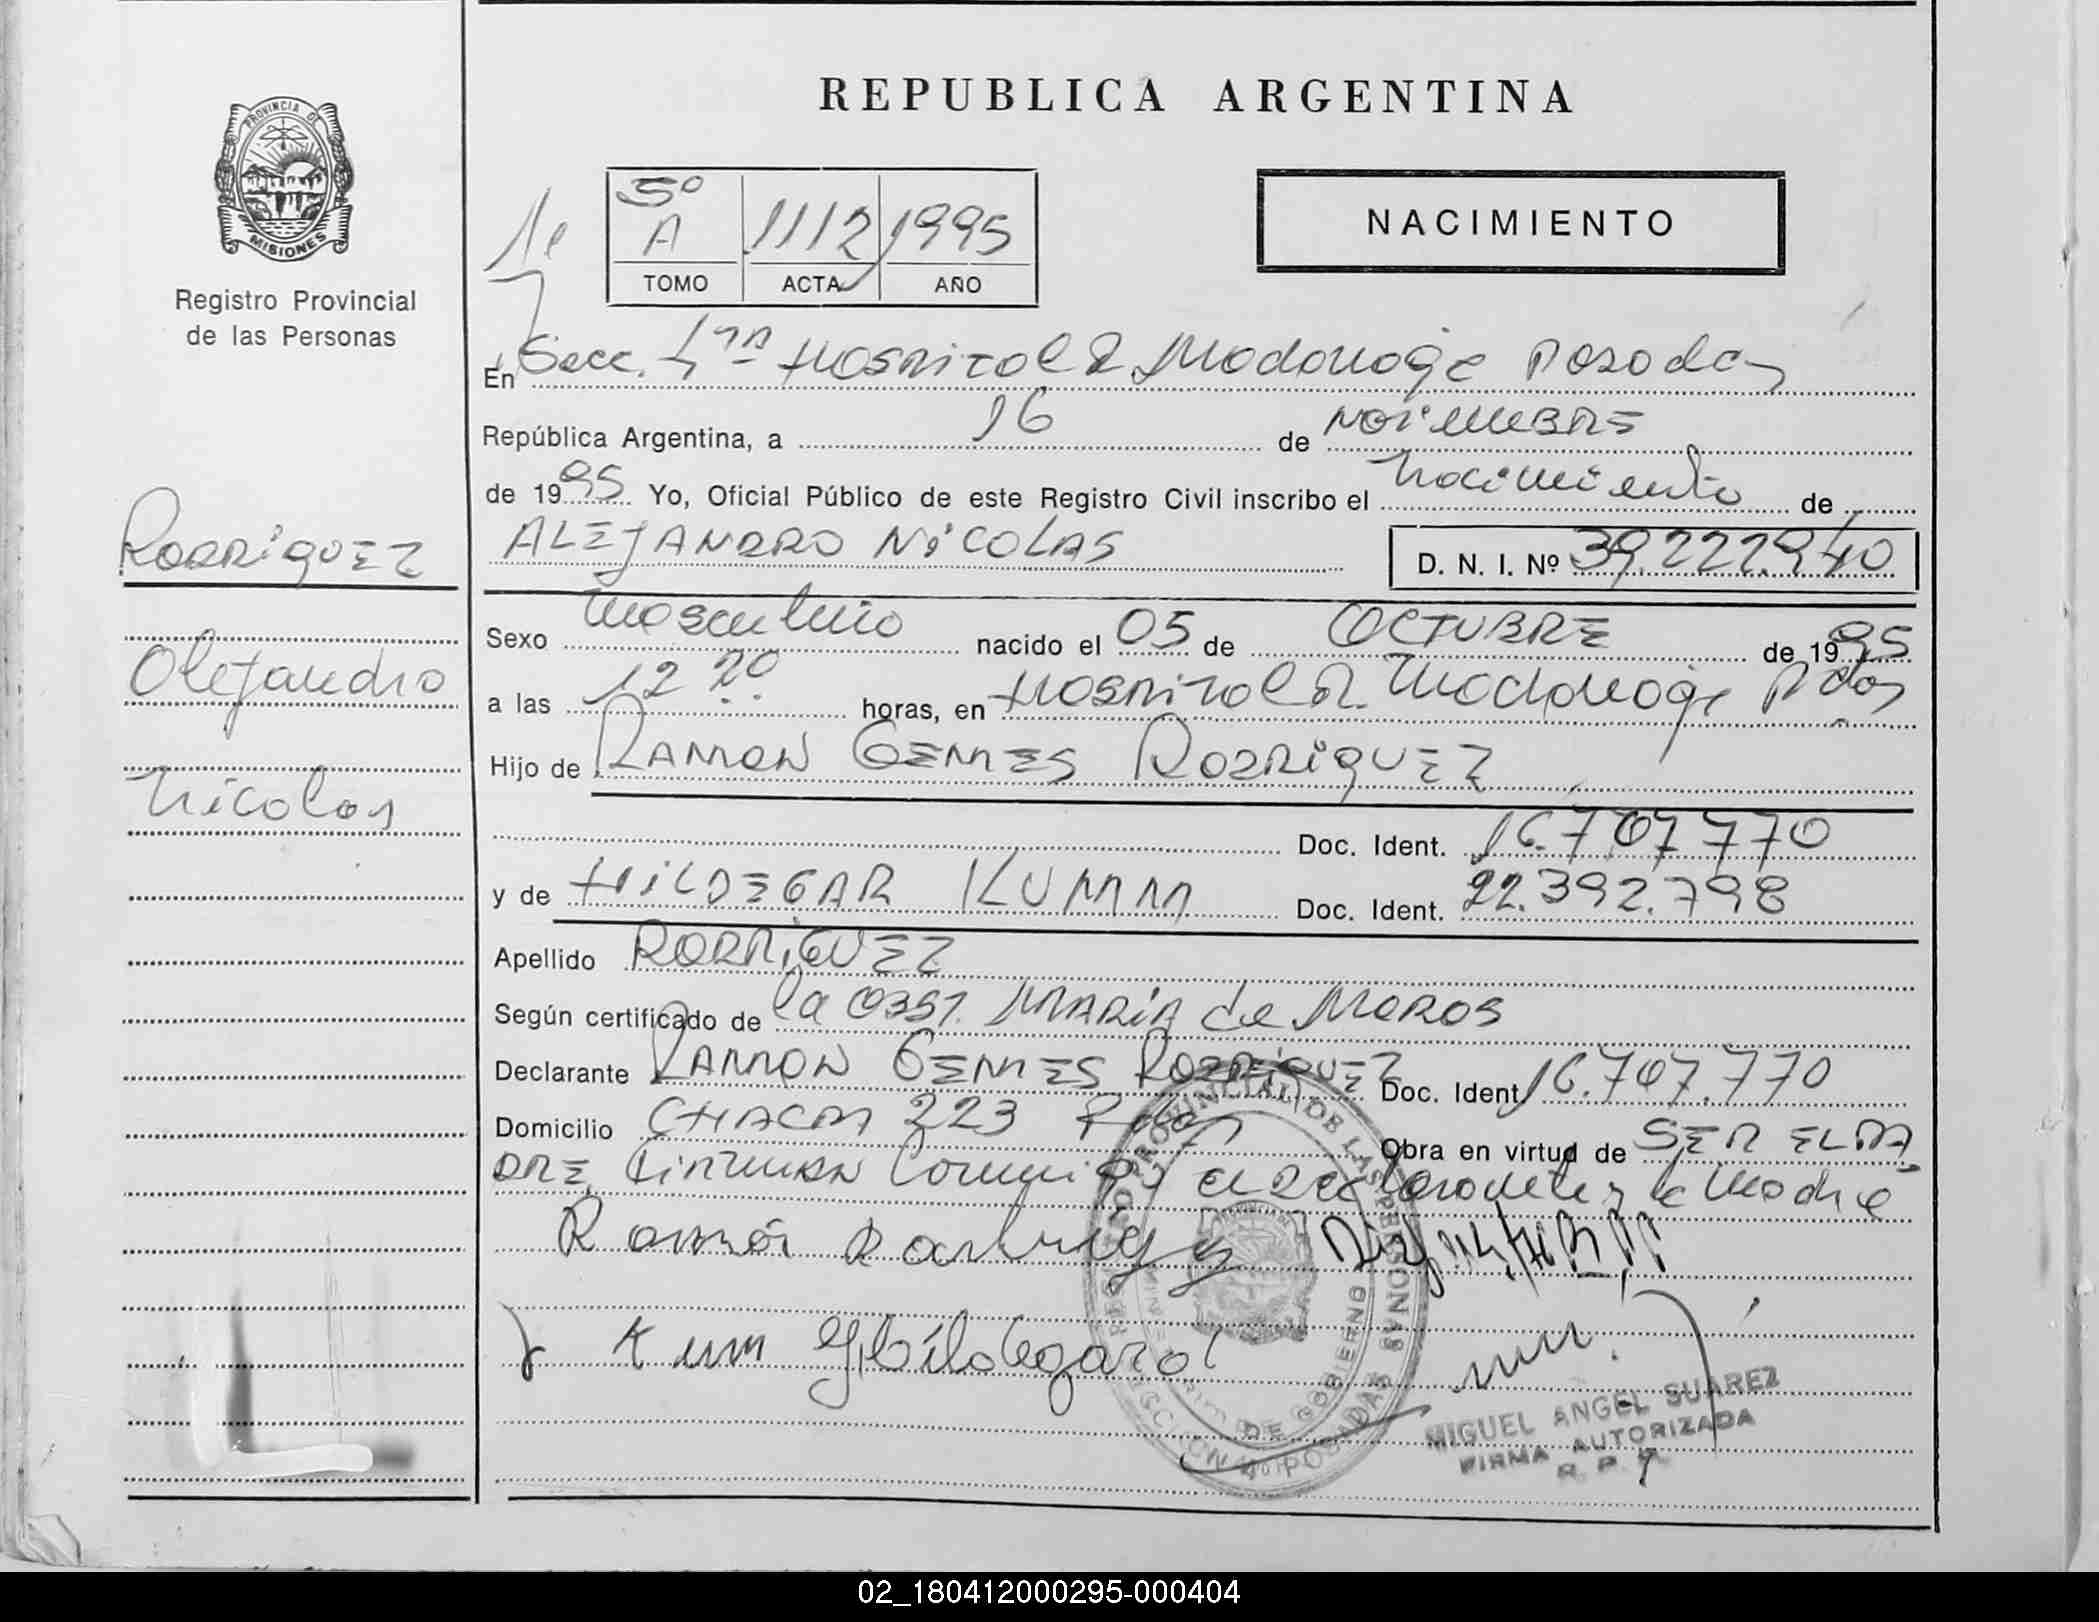 REPUBLICA ARGENTINA
PROVINCIA DE
MISIONES
Registro Provincial
de las Personas
5º
A 1112 1995
TOMO ACTA AÑO
NACIMIENTO
En Secc. 1ra Hospital R Madariaga Posadas
República Argentina, a 16 de NOVIEMBRE
de 1995 Yo, Oficial Público de este Registro Civil inscribo el nacimiento de
ALEJANDRO NICOLAS D. N. I. Nº 39.222.940
RODRIGUEZ
Alejandro
Nicolas
Sexo masculino nacido el 05 de OCTUBRE de 1995
a las 12 20 horas, en Hospital R. Madariaga Pdas
Hijo de RAMON GERMES RODRIGUEZ
Doc. Ident. 16.707.770
y de HILDEGAR KUMM Doc. Ident. 22.392.798
Apellido RODRIGUEZ
Según certificado de la OBST. MARIA de MEROS
Declarante RAMON GERMES RODRIGUEZ Doc. Ident 16.707.770
Domicilio CHACO 223 Pdas Obra en virtud de SER EL PA
DRE FIRMAN Conmigo el declarante y la madre
Ramón Rodriguez
Kum Hildegard
REGISTRO PROVINCIAL DE LAS PERSONAS
DE GOBIERNO
POSADAS
MIGUEL ANGEL SUAREZ
FIRMA AUTORIZADA
R. P. P.
02_180412000295-000404